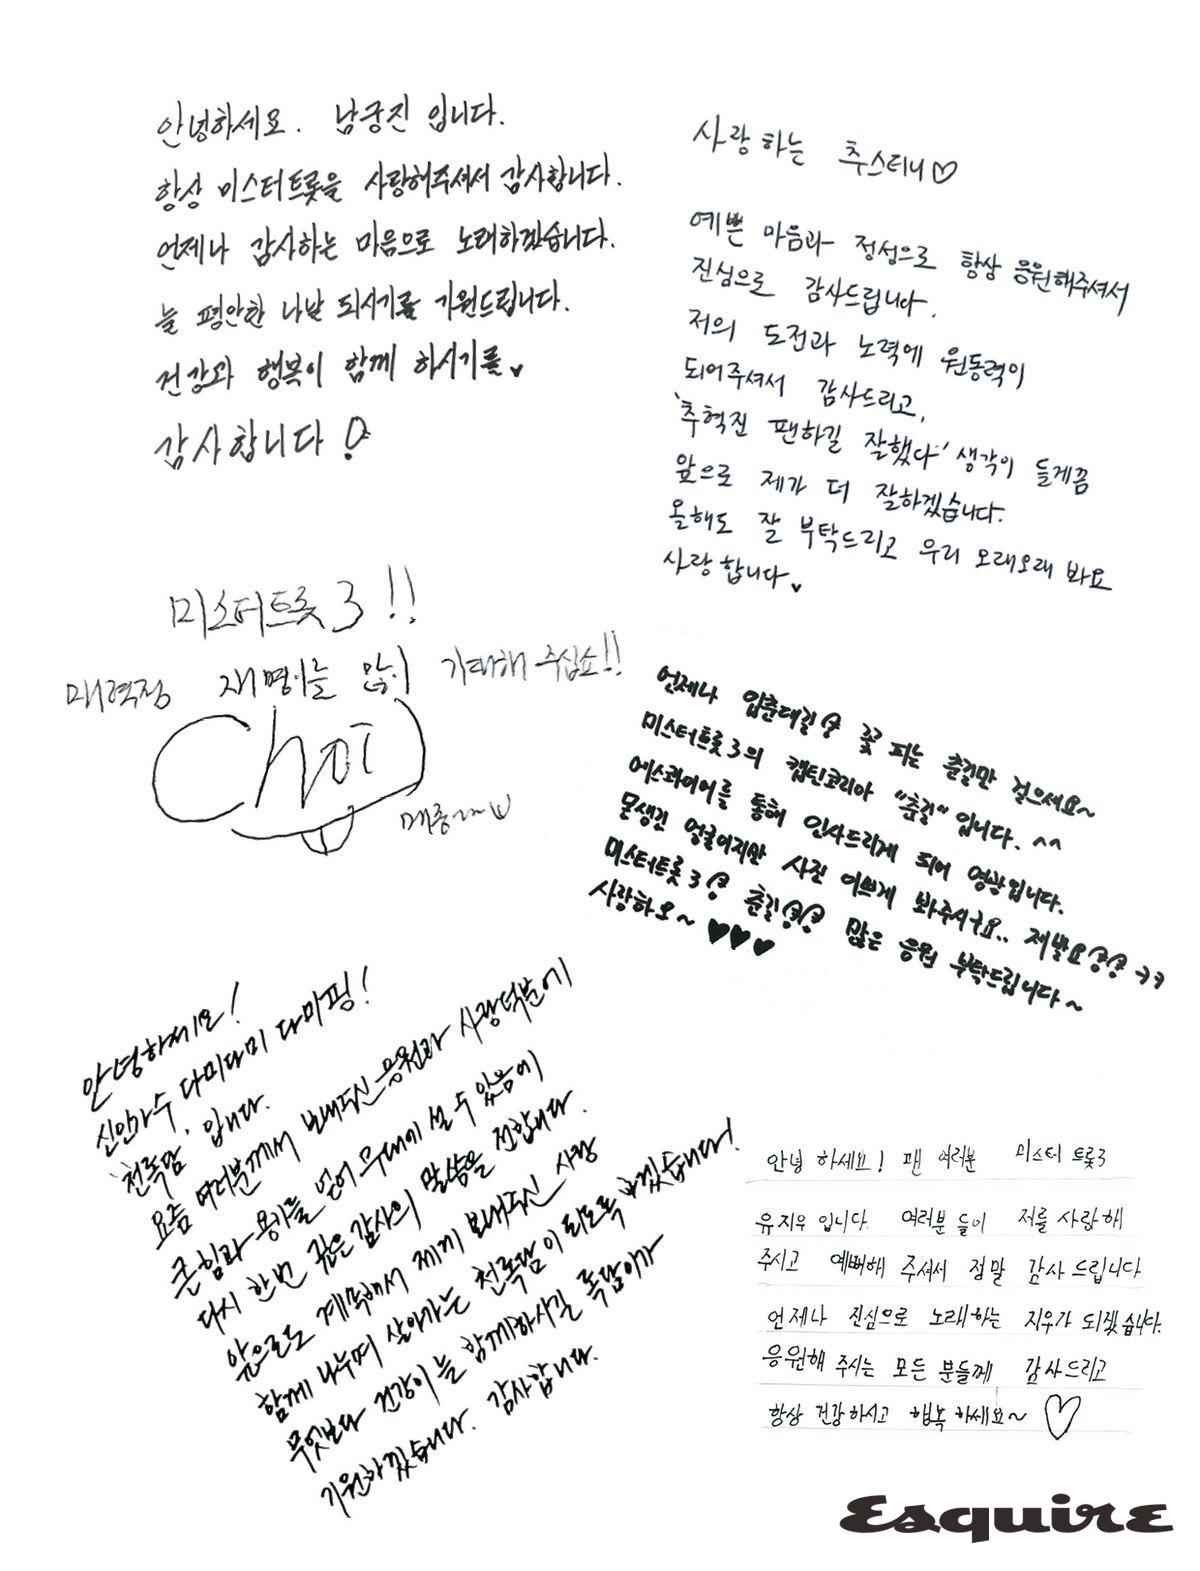 안녕하세요. 남궁진 입니다.
항상 미스터트롯을 사랑해주셔서 감사합니다.
언제나 감사하는 마음으로 노래하겠습니다.
늘 평안한 나날 되시기를 기원드립니다.
건강과 행복이 함께 하시기를♥
감사합니다!
사랑하는 추스티니♡
예쁜 마음과 정성으로 항상 응원해주셔서
진심으로 감사드립니다.
저의 도전과 노력에 원동력이
되어주셔서 감사드리고,
'추혁진 팬하길 잘했다' 생각이 들게끔
앞으로 제가 더 잘하겠습니다.
올해도 잘 부탁드리고 우리 오래오래 봐요
사랑합니다♥
미스터트롯3!!
매력정 재명이를 많이 기대해 주십쇼!!
Choi
언제나 입춘대길! 꽃 피는 춘길만 걸으세요~
미스터트롯3의 캡틴코리아 "춘길"입니다. ^^
에스콰이어를 통해 인사드리게 되어 영광입니다.
못생긴 얼굴이지만 사진 이쁘게 봐주시구요.. 제발요!! ㅋㅋ
미스터트롯3! 춘길!! 많은 응원 부탁드립니다~
사랑하오~ ♥♥♥
안녕하세요!
신인가수 다미다미 다마핑!
'천록담' 입니다.
요즘 여러분께서 보내주신 응원과 사랑덕분에
큰 힘과 용기를 얻어 무대에 설 수 있음에
다시 한번 깊은 감사의 말씀을 전합니다.
앞으로도 계속해서 제게 보내주신 사랑
함께 나누며 살아가는 천록담이 되도록 하겠습니다!
무엇보다 건강이 늘 함께하시길 록담이가
기원하겠습니다. 감사합니다.
안녕 하세요! 팬 여러분 미스터 트롯3
유지우 입니다. 여러분 들이 저를 사랑해
주시고 예뻐해 주셔서 정말 감사 드립니다
언제나 진심으로 노래하는 지우가 되겠습니다.
응원해 주시는 모든 분들께 감사드리고
항상 건강하시고 행복하세요~ ♡
Esquire